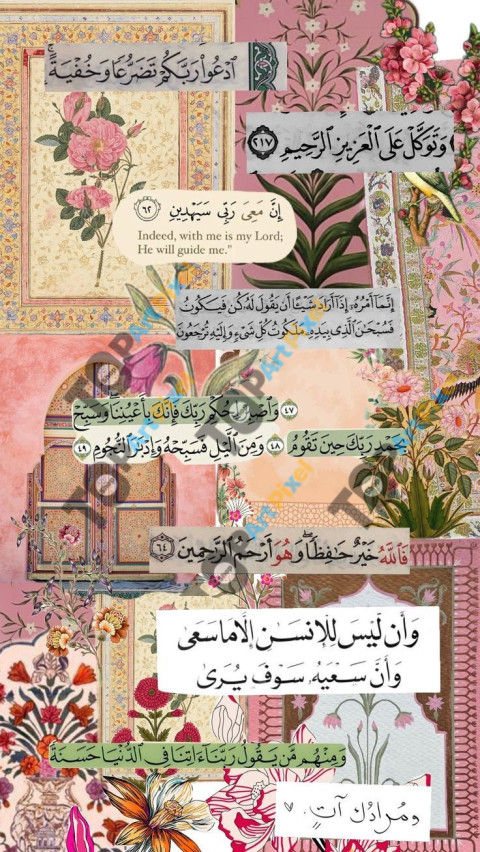 ٱدْعُوا۟ رَبَّكُمْ تَضَرُّعًا وَخُفْيَةً ۚ
وَتَوَكَّلْ عَلَى ٱلْعَزِيزِ ٱلرَّحِيمِ ٢١٧
إِنَّ مَعِىَ رَبِّى سَيَهْدِينِ ٦٢
Indeed, with me is my Lord;
He will guide me."
إِنَّمَآ أَمْرُهُۥٓ إِذَآ أَرَادَ شَيْـًٔا أَن يَقُولَ لَهُۥ كُن فَيَكُونُ
فَسُبْحَـٰنَ ٱلَّذِى بِيَدِهِۦ مَلَكُوتُ كُلِّ شَىْءٍ وَإِلَيْهِ تُرْجَعُونَ
٤٧ وَٱصْبِرْ لِحُكْمِ رَبِّكَ فَإِنَّكَ بِأَعْيُنِنَا ۖ وَسَبِّحْ
بِحَمْدِ رَبِّكَ حِينَ تَقُومُ ٤٨ وَمِنَ ٱلَّيْلِ فَسَبِّحْهُ وَإِدْبَـٰرَ ٱلنُّجُومِ ٤٩
فَٱللَّهُ خَيْرٌ حَـٰفِظًا ۖ وَهُوَ أَرْحَمُ ٱلرَّٰحِمِينَ ٦٤
وَأَن لَّيْسَ لِلْإِنسَـٰنِ إِلَّا مَا سَعَىٰ
وَأَنَّ سَعْيَهُۥ سَوْفَ يُرَىٰ
وَمِنْهُم مَّن يَقُولُ رَبَّنَآ ءَاتِنَا فِى ٱلدُّنْيَا حَسَنَةً
ومُرادُك آتٍ.
TOP
Art Pixel
TOP
Art Pixel
TOP
Art Pixel
TOP
Art Pixel